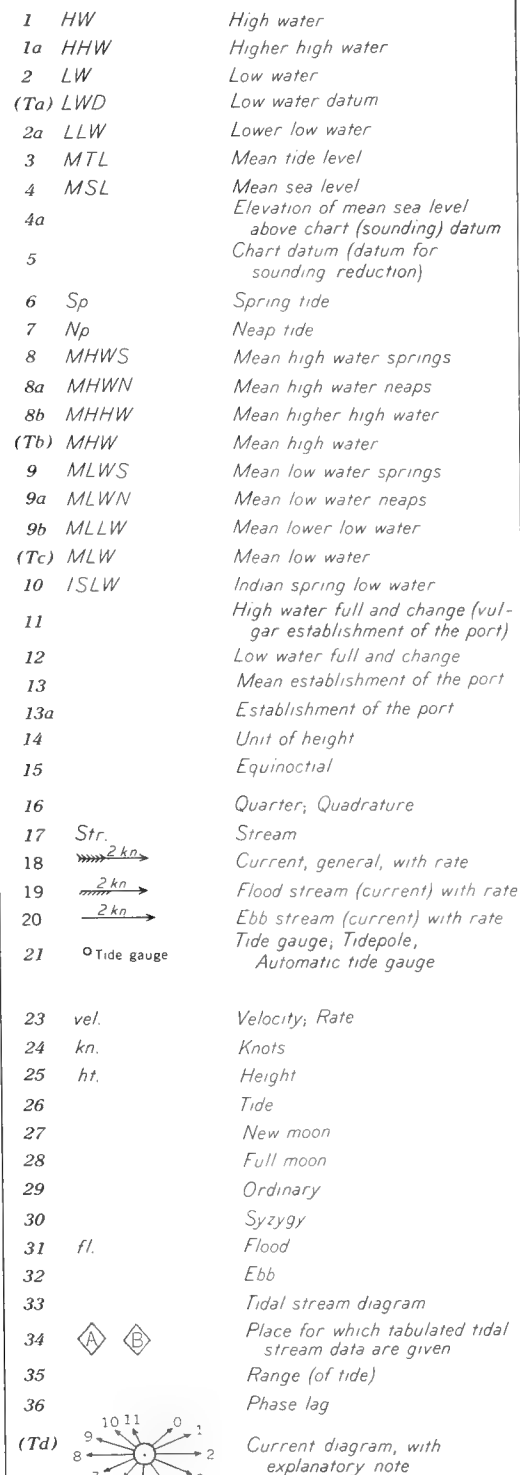 1 HW High water
1a HHW Higher high water
2 LW Low water
(Ta) LWD Low water datum
2a LLW Lower low water
3 MTL Mean tide level
4 MSL Mean sea level
4a Elevation of mean sea level
above chart (sounding) datum
5 Chart datum (datum for
sounding reduction)
6 Sp Spring tide
7 Np Neap tide
8 MHWS Mean high water springs
8a MHWN Mean high water neaps
8b MHHW Mean higher high water
(Tb) MHW Mean high water
9 MLWS Mean low water springs
9a MLWN Mean low water neaps
9b MLLW Mean lower low water
(Tc) MLW Mean low water
10 ISLW Indian spring low water
11 High water full and change (vul-
gar establishment of the port)
12 Low water full and change
13 Mean establishment of the port
13a Establishment of the port
14 Unit of height
15 Equinoctial
16 Quarter; Quadrature
17 Str. Stream
18 2 kn Current, general, with rate
19 2 kn Flood stream (current) with rate
20 2 kn Ebb stream (current) with rate
21 Tide gauge Tide gauge; Tidepole,
Automatic tide gauge
23 vel. Velocity; Rate
24 kn. Knots
25 ht. Height
26 Tide
27 New moon
28 Full moon
29 Ordinary
30 Syzygy
31 fl. Flood
32 Ebb
33 Tidal stream diagram
34 A B Place for which tabulated tidal
stream data are given
35 Range (of tide)
36 Phase lag
10 11 0
9 1
(Td) 8 2 Current diagram, with
explanatory note